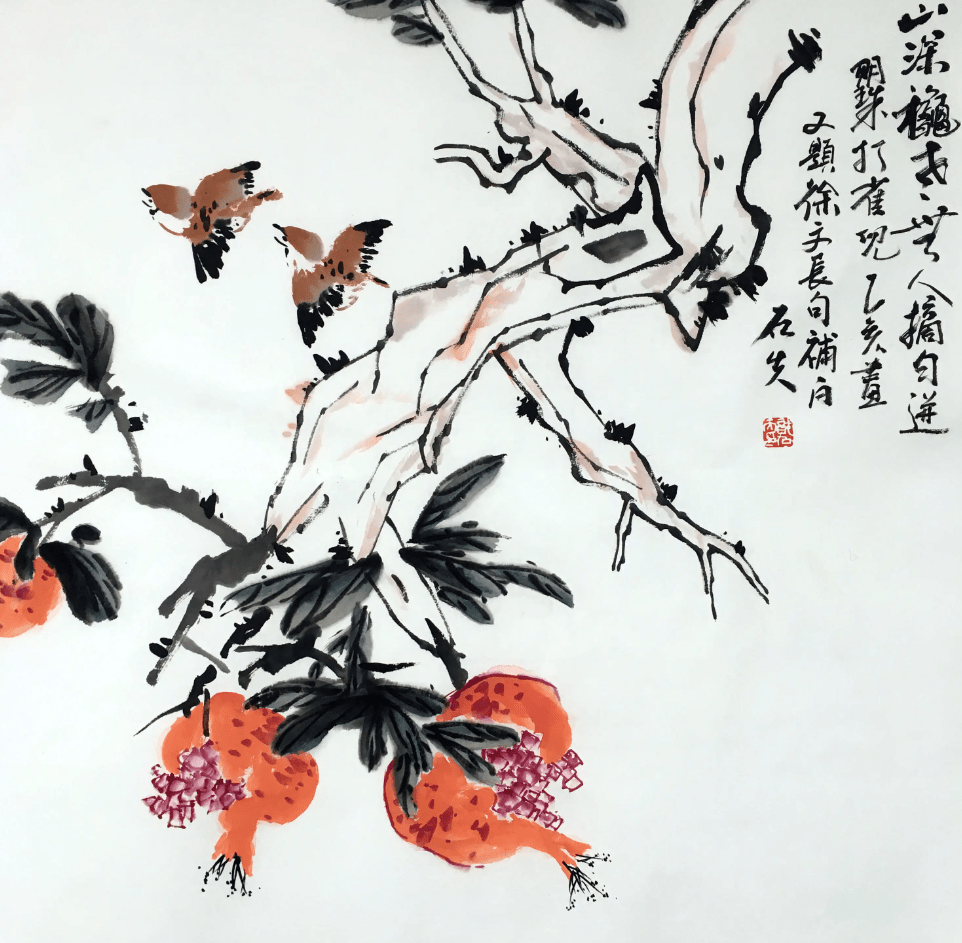 山深龝老無人摘自迸
明珠打雀兒乙亥畫
又題徐文長句補白
石